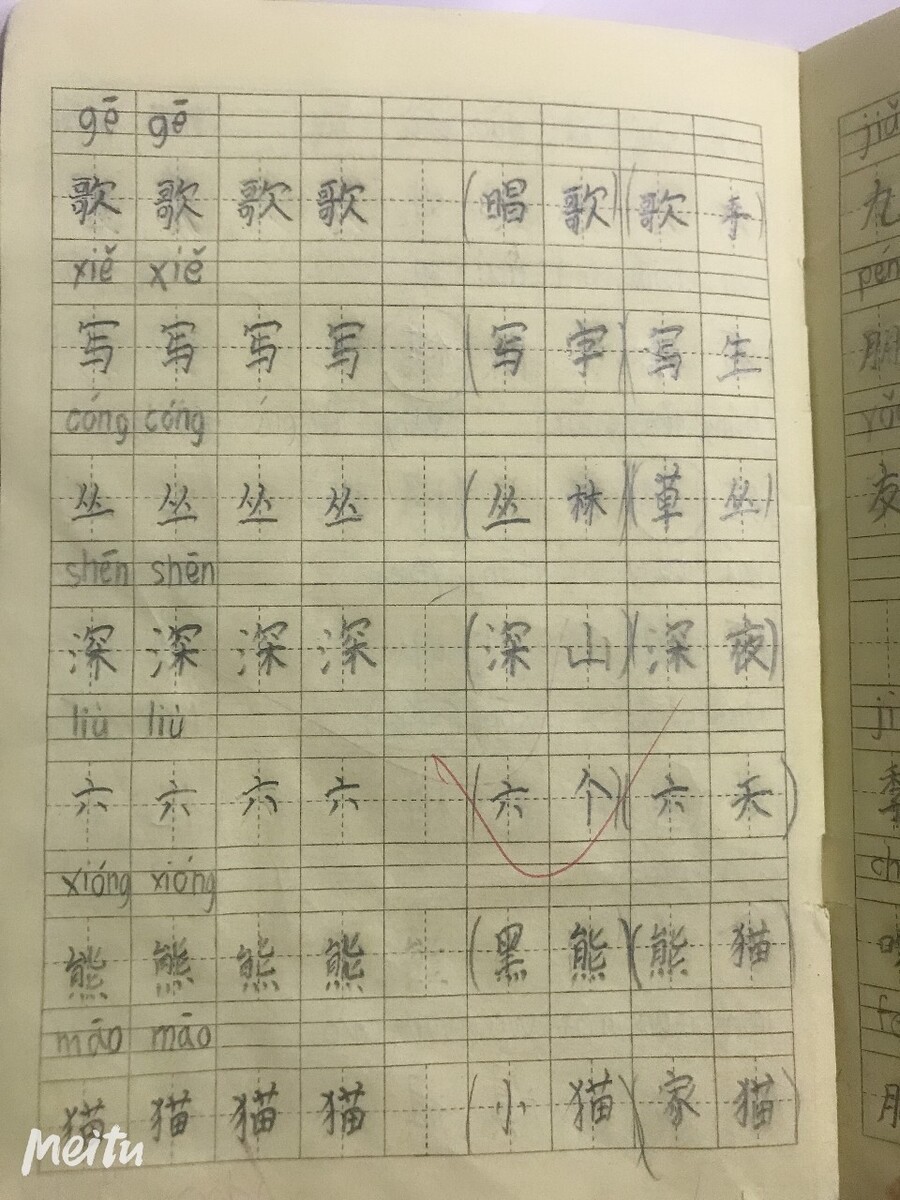 gē gē
歌 歌 歌 歌 (唱 歌)(歌 手)
xiě xiě
写 写 写 写 (写 字)(写 生)
cóng cóng
丛 丛 丛 丛 (丛 林)(草 丛)
shēn shēn
深 深 深 深 (深 山)(深 夜)
liù liù
六 六 六 六 (六 个)(六 天)
xióng xióng
熊 熊 熊 熊 (黑 熊)(熊 猫)
māo māo
猫 猫 猫 猫 (小 猫)(家 猫)
Meitu
jiǔ
九
pén
朋
友